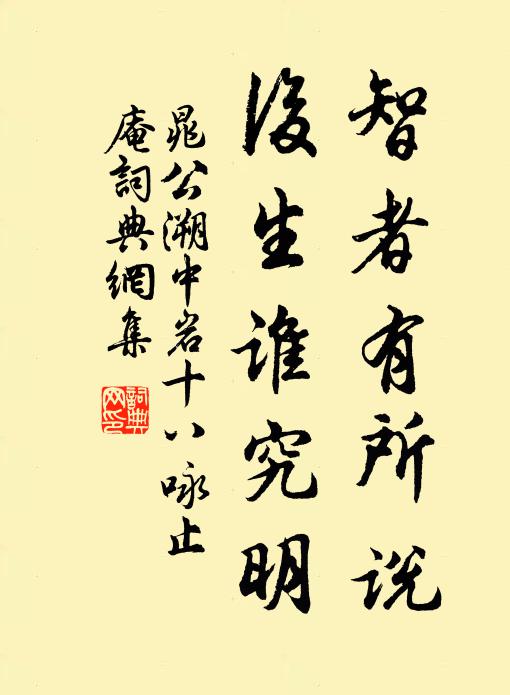 智者有所说
後生谁究明
晁公溯中岩十八咏止
庵詞典網集
詞典
网印